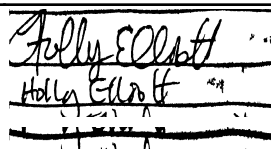 Holly Elliott
Holly Elliott